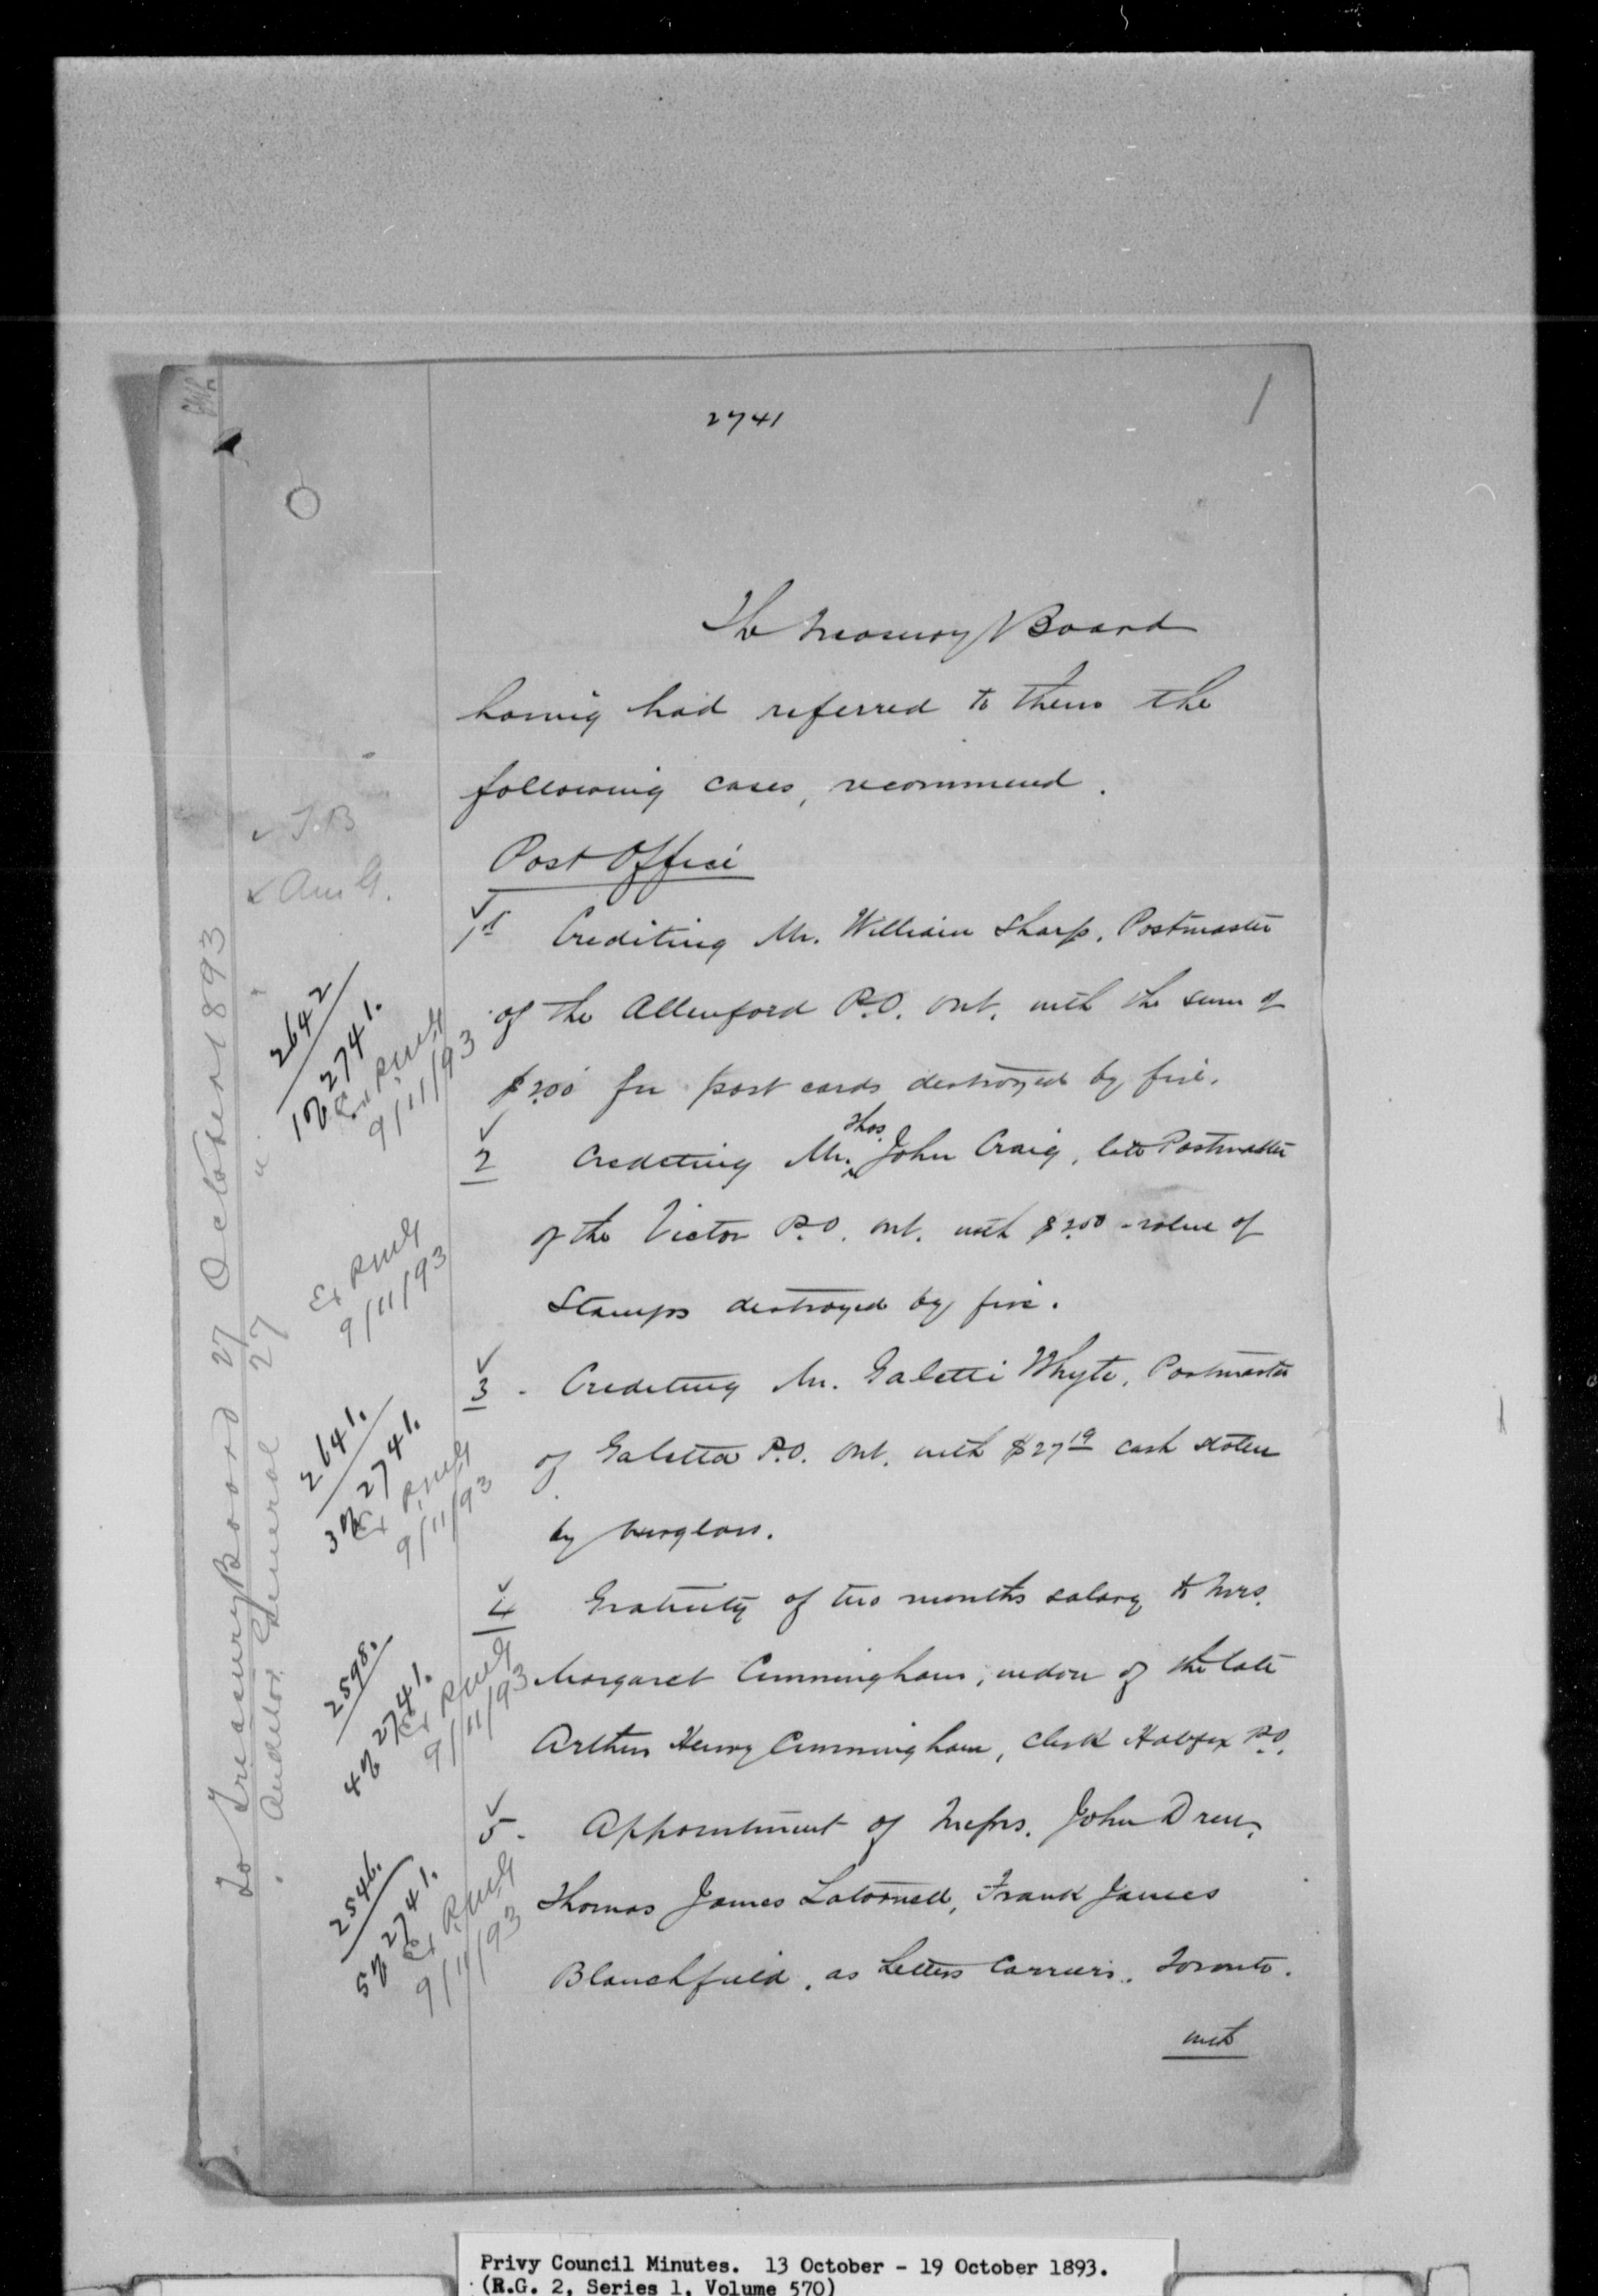 2741
1
The Treasury Board
having had referred to them the
following cases, recommend.
Post Office
1st Crediting Mr. William Sharp, Postmaster
of the Allenford P.O. Ont. with the sum of
$2.00 for post cards destroyed by fire.
2 Crediting Mr. Thos. John Craig, late Postmaster
of the Victor P.O. Ont. with $2.00 value of
Stamps destroyed by fire.
3 - Crediting Mr. Galetti Whyte, Postmaster
of Galetta P.O. Ont. with $27.19 cash stolen
by burglars.
4 Gratuity of two months salary to Mrs.
Margaret Cunningham, widow of the late
Arthur Henry Cunningham, Clerk Halifax P.O.
5 - Appointment of Messrs. John Drew,
Thomas James Latornell, Frank James
Blanchfield, as Letters Carriers, Toronto.
with
T.B
Au G.
To Treasury Board 27 October 1893
" Auditor General 27 " "
2642
1 of 2741.
Ex RMG
9/11/93
Ex RMG
9/11/93
2641.
3 of 2741.
Ex RMG
9/11/93
2598.
4 of 2741.
Ex RMG
9/11/93
2546.
5 of 2741.
Ex RMG
9/11/93
Privy Council Minutes. 13 October - 19 October 1893.
(R.G. 2, Series 1, Volume 570)